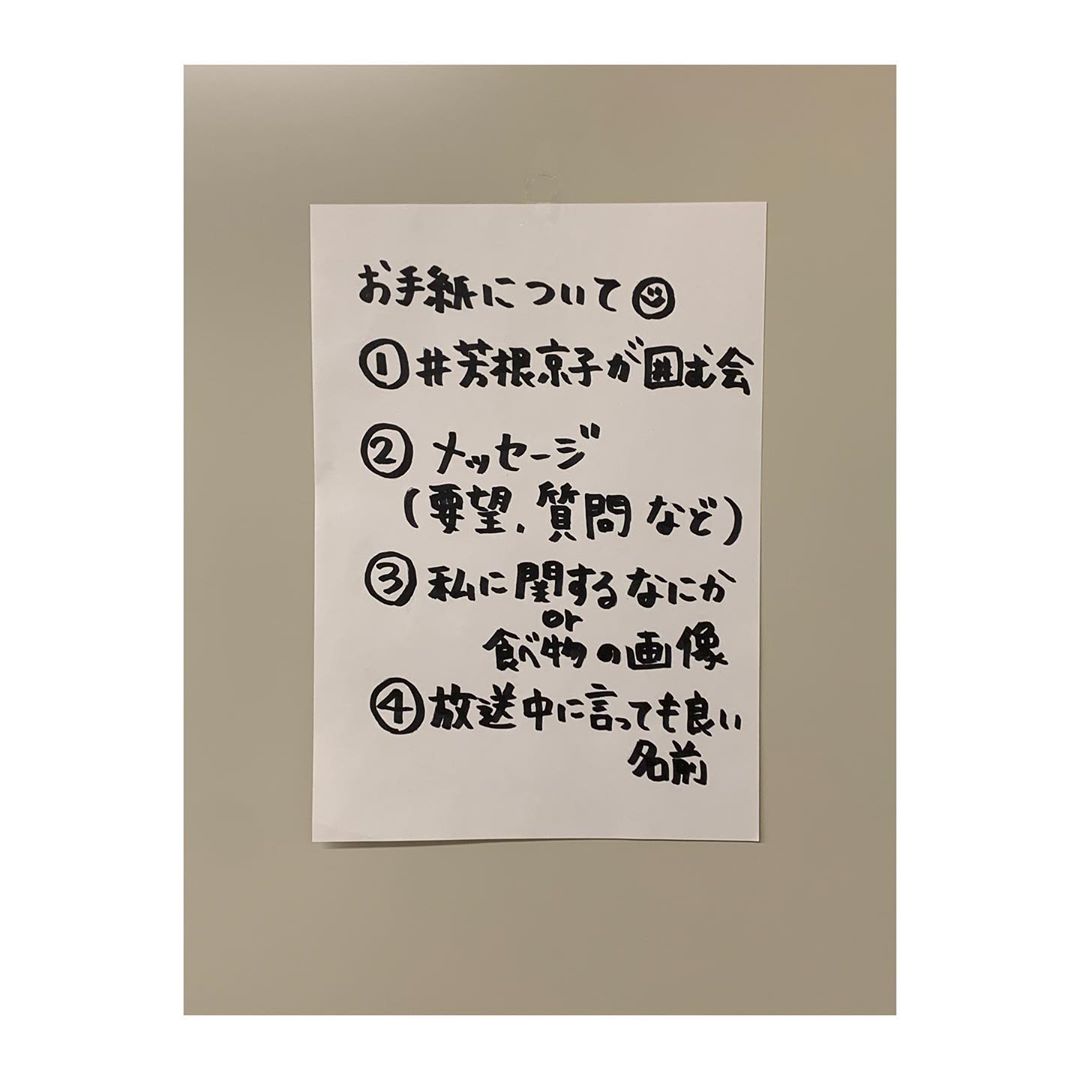 お手紙について
① #芳根京子が囲む会
② メッセージ
(要望、質問など)
③ 私に関するなにか
or
食べ物の画像
④ 放送中に言っても良い
名前